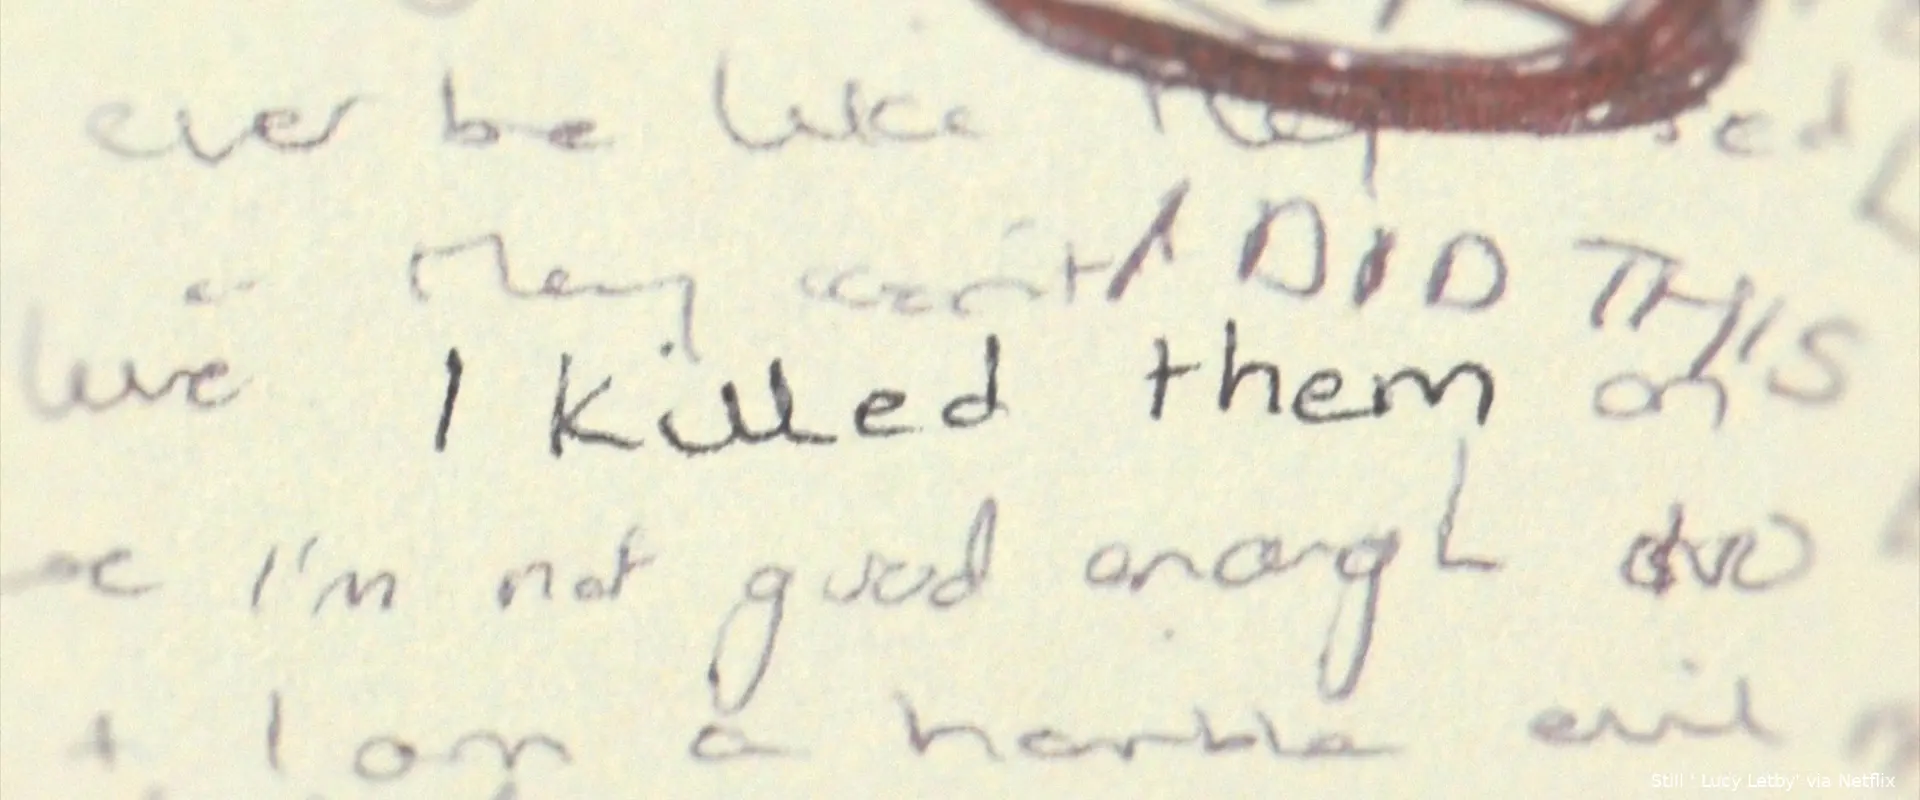 ever be like they
they won't I DID THIS
I killed them on
I'm not good enough
+ I am a horrible evil
Still ' Lucy Letby' via Netflix